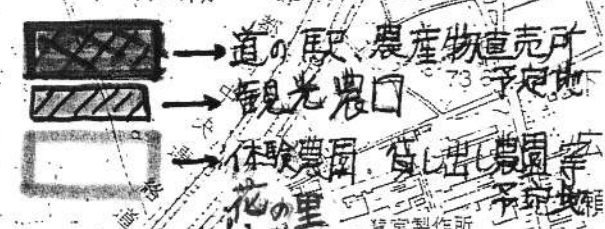 →道の駅、農産物直売所
予定地
→観光農口
→体験農園、貸し出し農園等
予定地
花の里
製作所
73